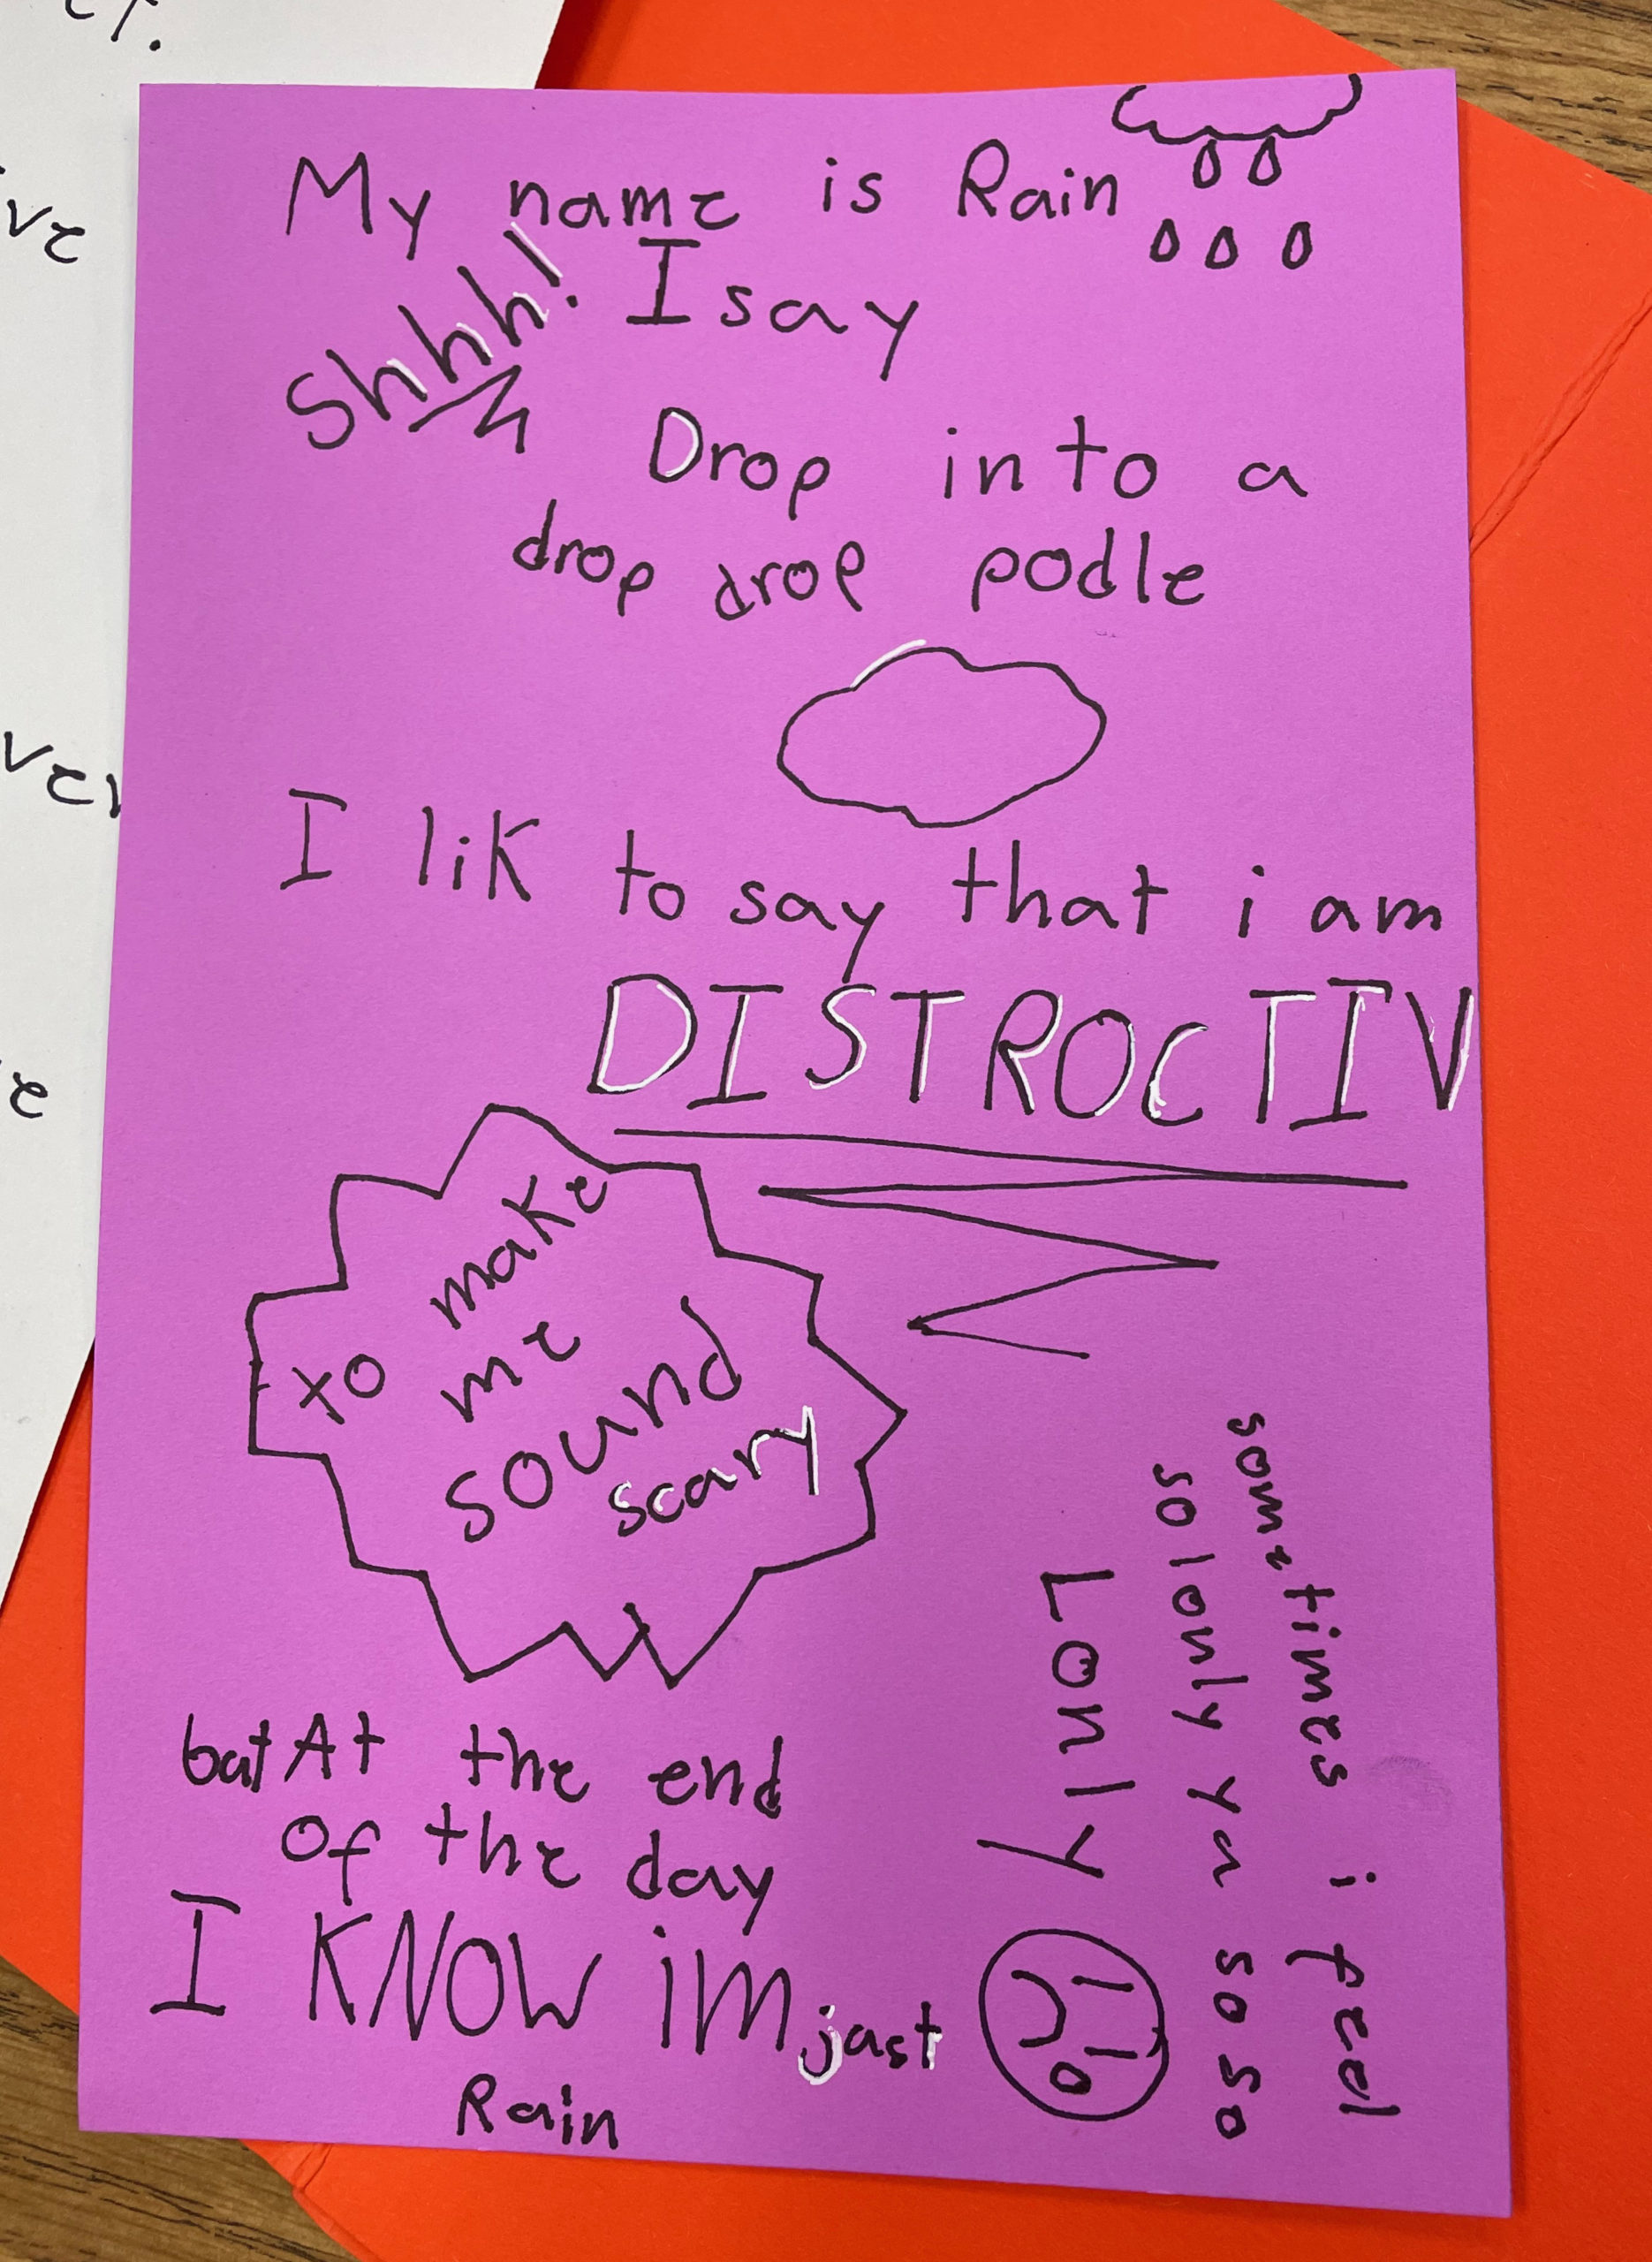 My name is Rain
Shhh! I say
Drop into a
drop drop podle
I lik to say that i am
DISTROCTIV
to make
me
sound
scary
sometimes i feel
so lonly yu so so
Lonly
but At the end
of the day
I KNOW iM just
Rain
ve
ver
e